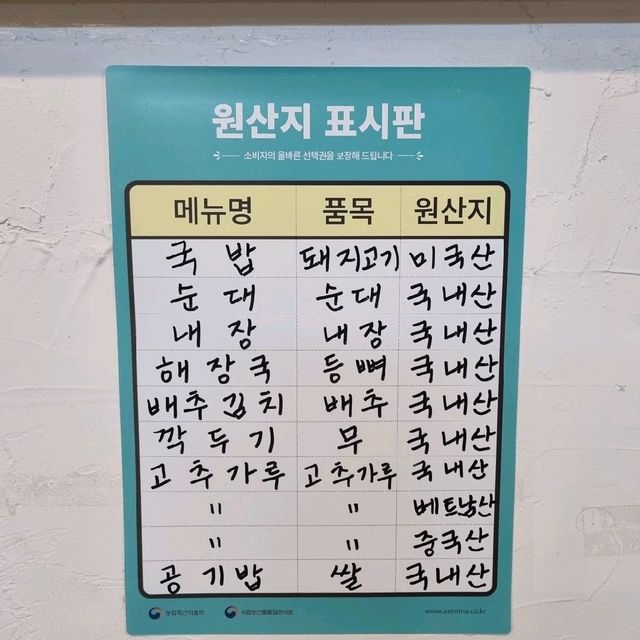 원산지 표시판
소비자의 올바른 선택권을 보장해 드립니다
메뉴명 품목 원산지
국밥 돼지고기 미국산
순대 순대 국내산
내장 내장 국내산
해장국 등뼈 국내산
배추김치 배추 국내산
깍두기 무 국내산
고추가루 고추가루 국내산
" " 베트남산
" " 중국산
공기밥 쌀 국내산
농림축산식품부 국립농산물품질관리원